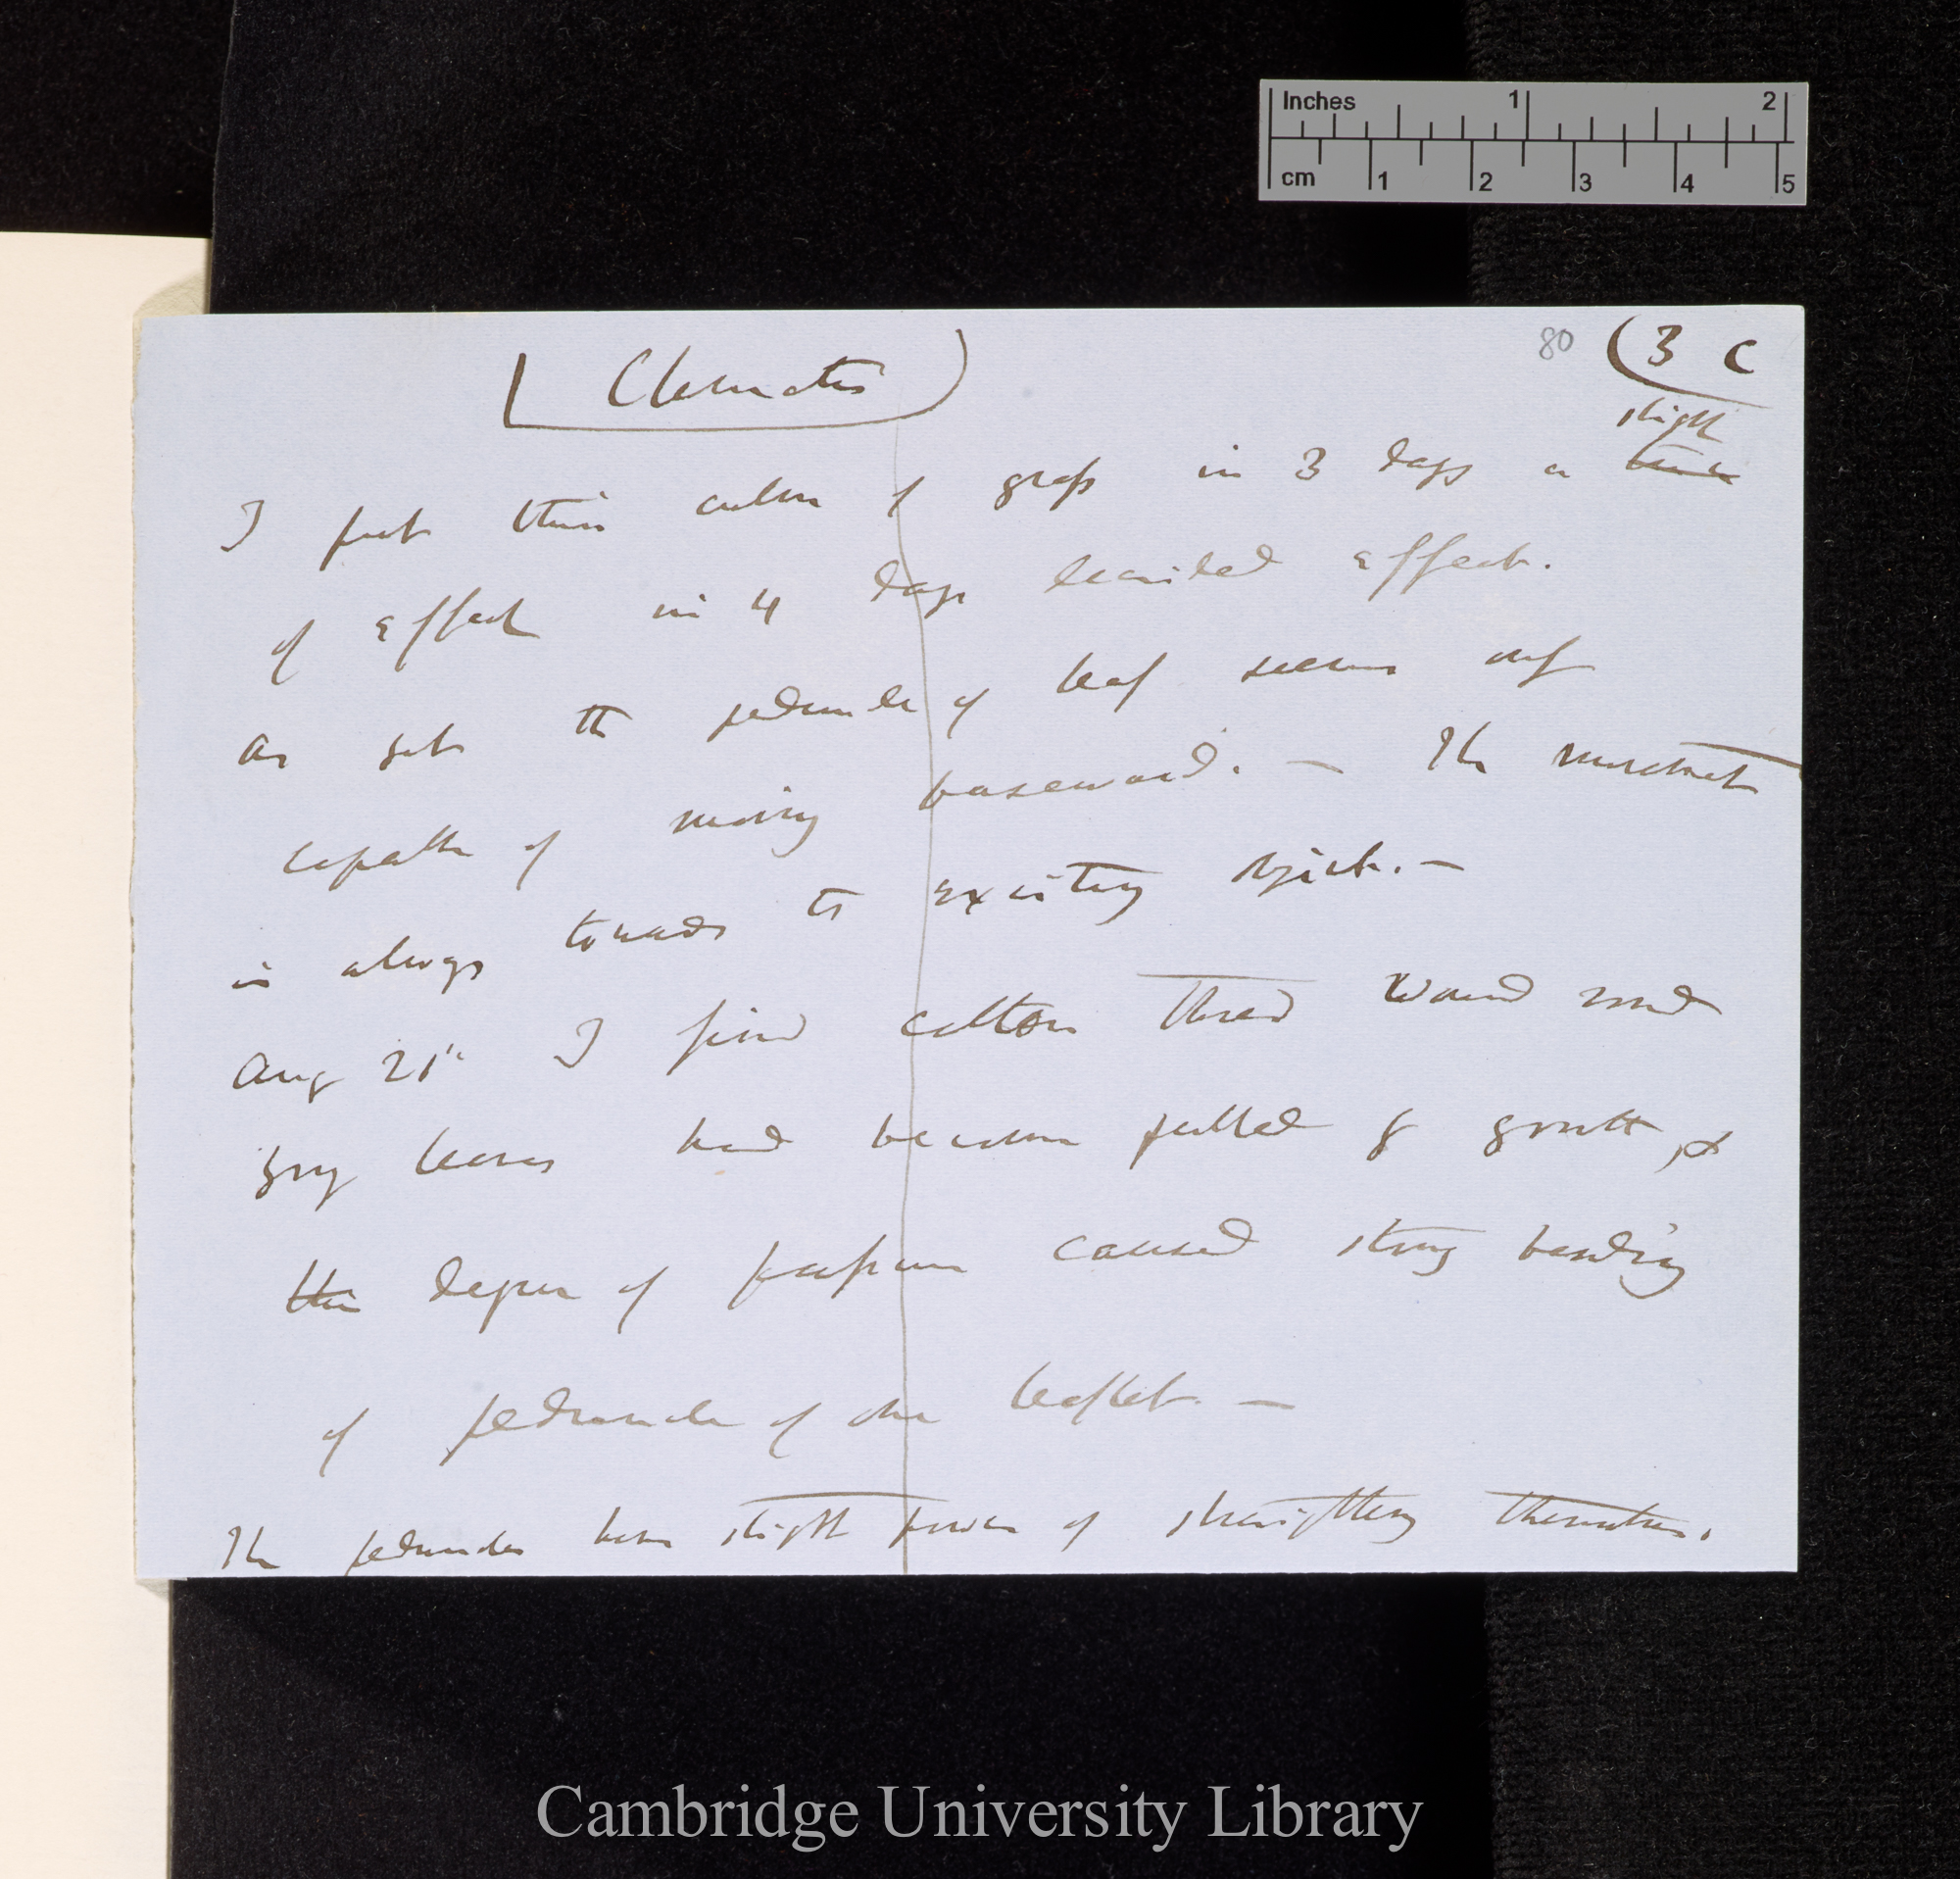 Inches 1 2
cm 1 2 3 4 5
80 (3 C
[Clematis)
slight
I put thin culm of grass in 3 days a trace
of effect in 4 days decided effect.
As yet the peduncle of leaf seems only
capable of moving baseward. — The movement
is always towards the exciting object. —
Aug 21st I find cotton thread wound round
young leaves had become pulled by growth, &
this degree of pressure caused strong bending
of peduncle of one leaflet. —
The peduncles have slight power of straightening themselves.
Cambridge University Library